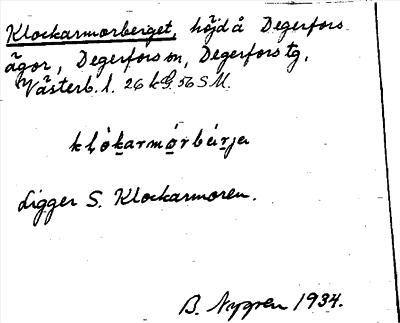 Klockarmorberget, höjd å Degerfors
ägor, Degerfors sn, Degerfors tg,
Västerb. l. 26 k G. 56 S M.
klókarmórbárja
Ligger S. Klockarmoren.
B. Nygren 1934.